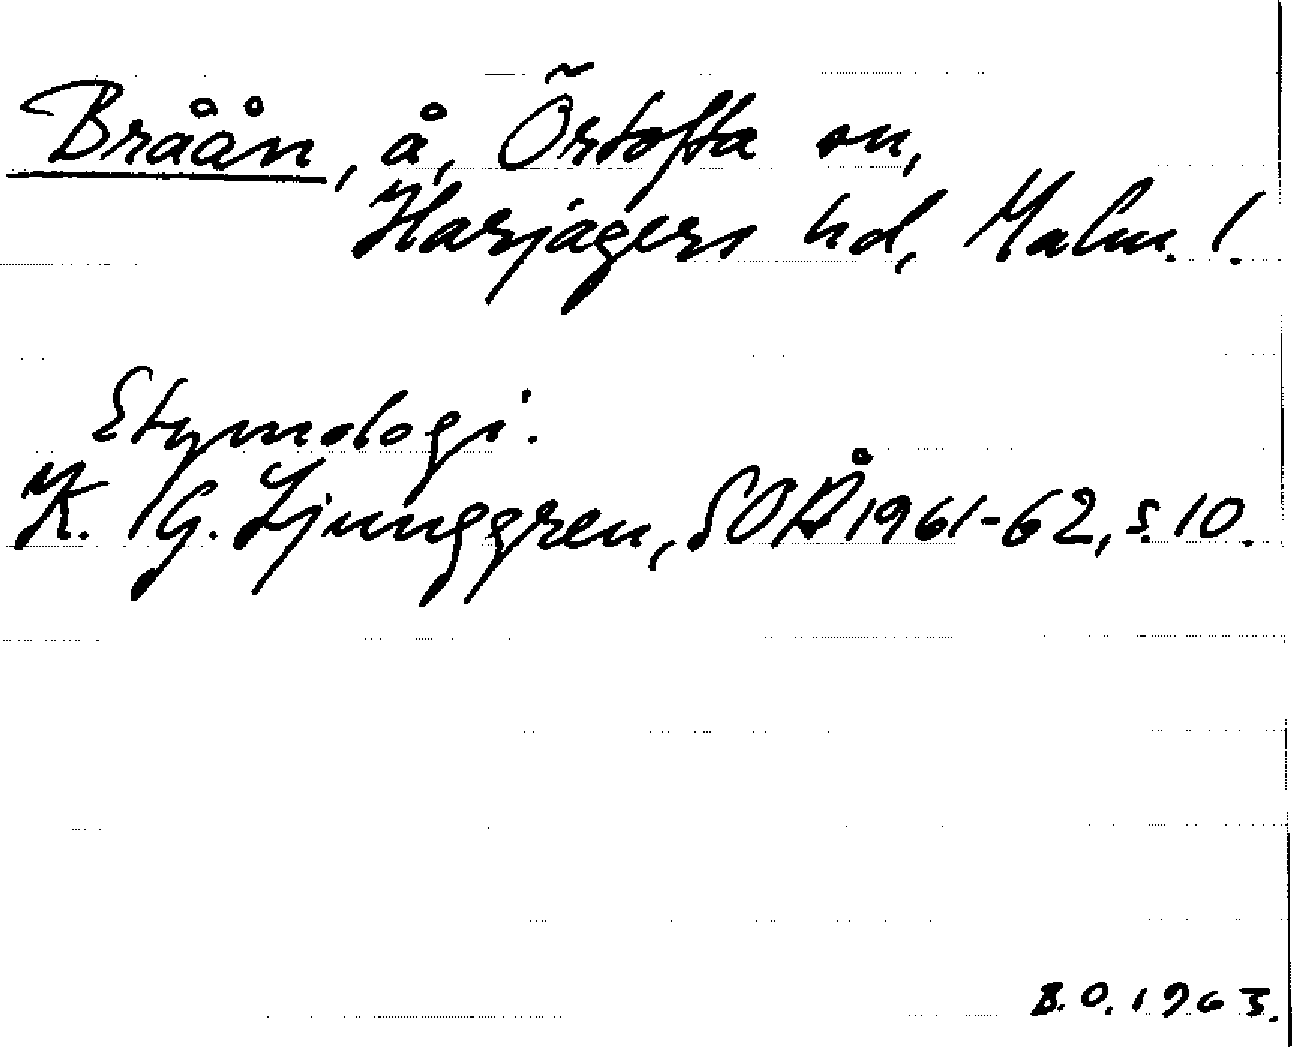 Bråån, å, Örtofta sn,
Harjagers hd, Malm. l.
Etymologi:
K. G. Ljunggren, SOÅ 1961-62, s. 10.
B.O. 1965.